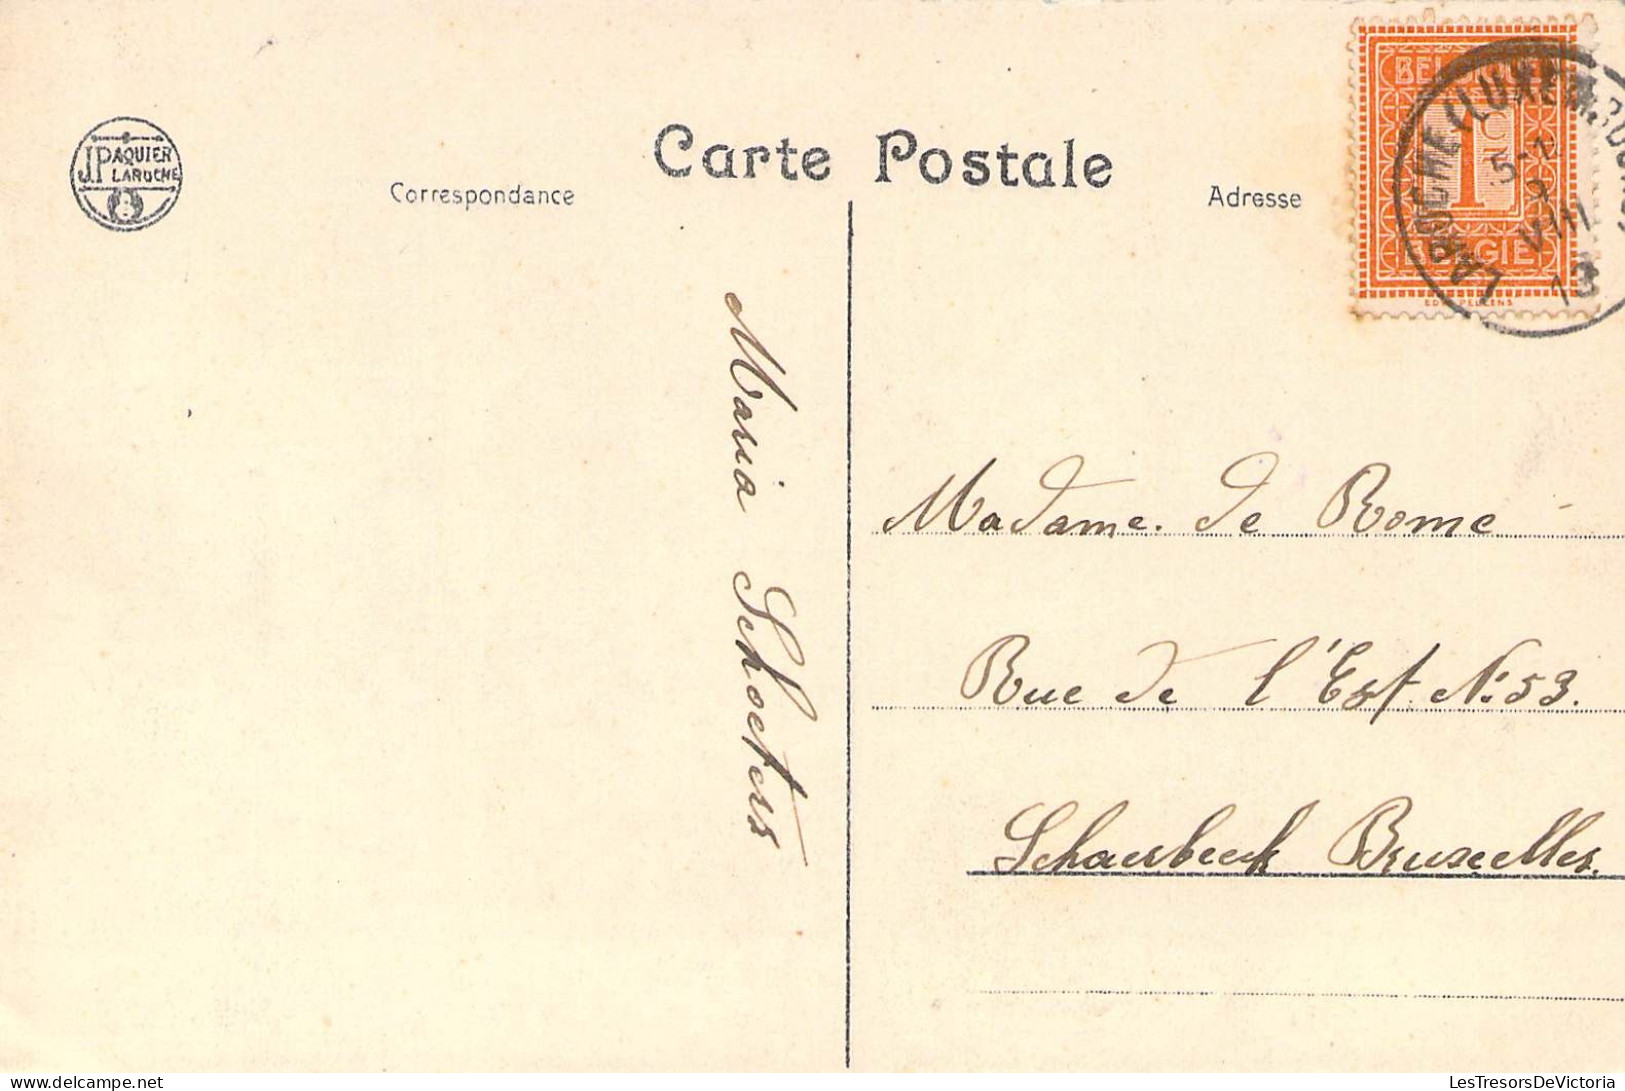 J.PAQUIER
LAROCHE
8
Carte Postale
Correspondance
Adresse
BELGIQUE
1
C
BELGIË
EDM. PELLENS
LAROCHE (LUXEMBOURG)
VIII
13
Maria Schoeters
Madame. de Rome
Rue de l'Est. N: 53.
Schaerbeek Bruxelles.
LesTresorsDeVictoria